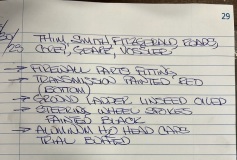 29
30/23
THIM, SMITH, FITZGERALD, ROADS,
COLEY, GEARE, VOSSLER
→ FIREWALL PARTS FITTING
→ TRANSMISSION PAINTED RED
(BOTTOM)
→ GROUND LADDER LINSEED OILED
→ STEERING WHEEL SPOKES
PAINTED BLACK
→ ALUMINUM H2O HEAD CAPS
TRIAL BUFFED